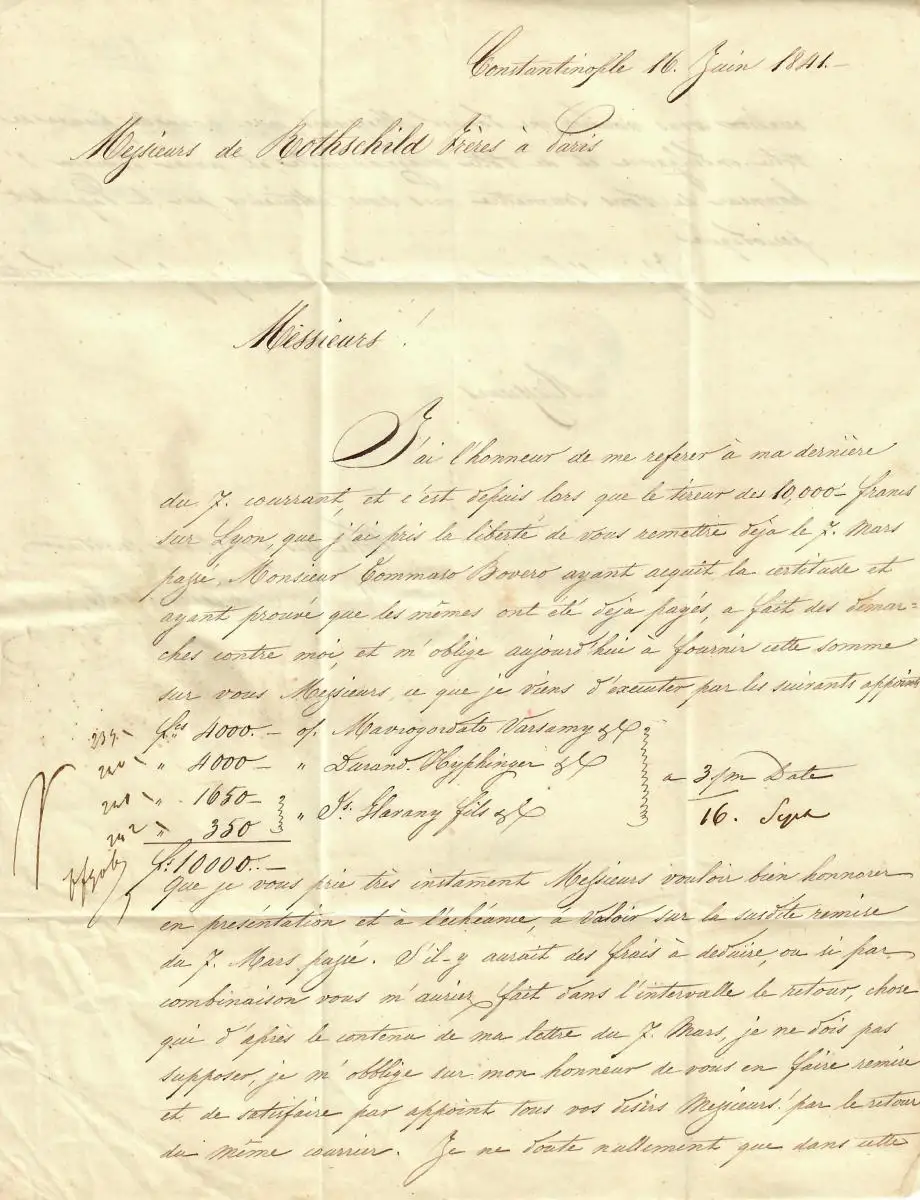 Constantinople 16. Juin 1841.-
Messieurs de Rothschild Frères à Paris
Messieurs!
J'ai l'honneur de me referer à ma dernière
du 7. courrant, et c'est depuis lors que le tireur des 10,000- francs
sur Lyon, que j'ai pris la liberté de vous remettre déja le 7. Mars
passé, Monsieur Tommaso Bovero ayant acquit la certitude et
ayant prouvé que les mêmes ont été déja payés, a fait des demar=
ches contre moi, et m'oblige aujourd'hui à fournir cette somme
sur vous Messieurs, ce que je viens d'executer par les suivants appoints
239.- fcs 4000.- o/. Mavrogordato Varsamy &C
240 " 4000- " Durand. Hyphinger &C
241 " 1650- " Js. Glavany fils &C a 3/m Date
242 " 350 16. Sept
fs. 10000.-
Que je vous prie très instament Messieurs vouloir bien honnorer
en présentation et à l'échéance, à valoir sur la susdite remise
du 7. Mars passé. S'il-y aurait des frais à deduire, ou si par
combinaison vous m'auriez fait dans l'intervalle le retour, chose
qui d'après le contenu de ma lettre du 7. Mars, je ne dois pas
supposer, je m'obblige sur mon honneur de vous en faire remise
et de satisfaire par appoint tous vos désirs Messieurs! par le retour
du même courrier. Je ne doute nullement que dans cette